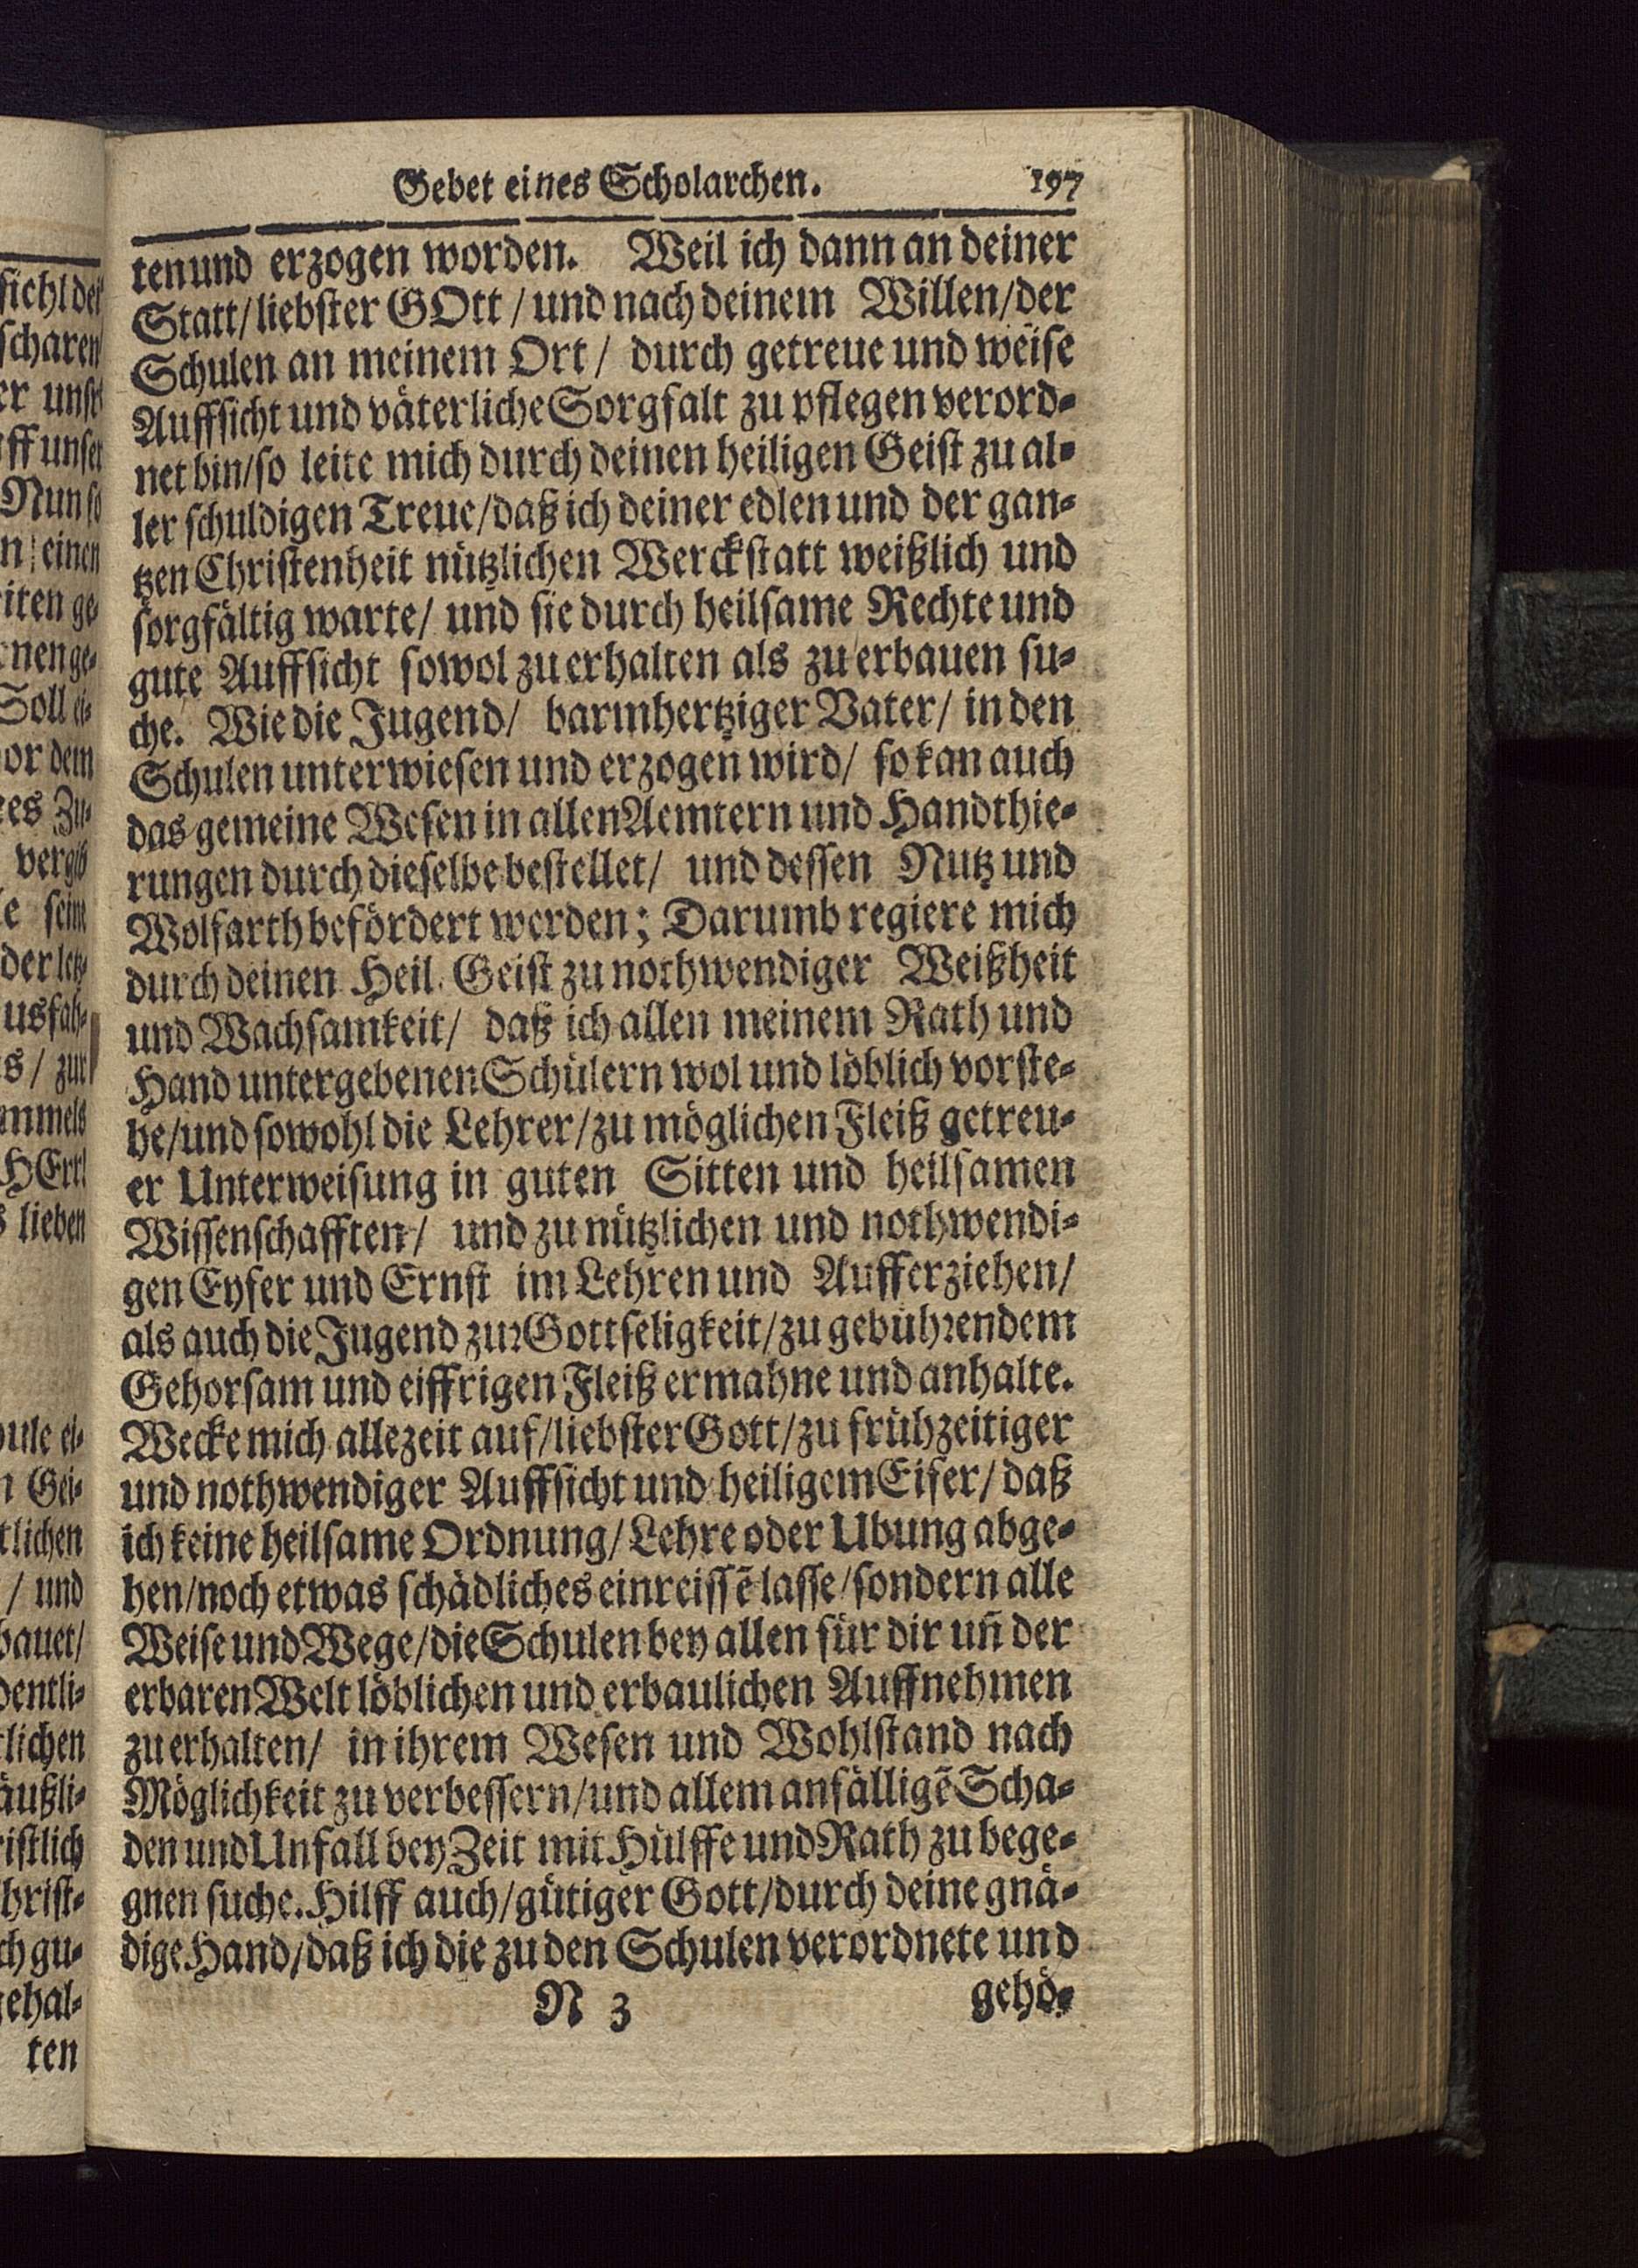 Gebet eines Scholarchen. 197
ten und erzogen worden. Weil ich dann an deiner
Statt/ liebster GOtt / und nach deinem Willen/ der
Schulen an meinem Ort/ durch getreue und weise
Auffsicht und väterliche Sorgfalt zu pflegen verord-
net bin/ so leite mich durch deinen heiligen Geist zu al-
ler schuldigen Treue/ daß ich deiner edlen und der gan-
tzen Christenheit nützlichen Werckstatt weißlich und
sorgfältig warte/ und sie durch heilsame Rechte und
gute Auffsicht sowol zu erhalten als zu erbauen su-
che. Wie die Jugend/ barmhertziger Vater/ in den
Schulen unterwiesen und erzogen wird/ so kan auch
das gemeine Wesen in allen Aemtern und Handthie-
rungen durch dieselbe bestellet/ und dessen Nutz und
Wolfarth befördert werden; Darumb regiere mich
durch deinen Heil. Geist zu nothwendiger Weißheit
und Wachsamkeit/ daß ich allen meinem Rath und
Hand untergebenen Schülern wol und löblich vorste-
he/ und sowohl die Lehrer/ zu möglichen Fleiß getreu-
er Unterweisung in guten Sitten und heilsamen
Wissenschafften/ und zu nützlichen und nothwendi-
gen Eyfer und Ernst im Lehren und Aufferziehen/
als auch die Jugend zur Gottseligkeit/ zu gebührendem
Gehorsam und eiffrigen Fleiß ermahne und anhalte.
Wecke mich allezeit auf/ liebster Gott/ zu frühzeitiger
und nothwendiger Auffsicht und heiligem Eifer/ daß
ich keine heilsame Ordnung/ Lehre oder Ubung abge-
hen/ noch etwas schädliches einreissē lasse/ sondern alle
Weise und Wege/ die Schulen bey allen für dir uñ der
erbaren Welt löblichen und erbaulichen Auffnehmen
zu erhalten/ in ihrem Wesen und Wohlstand nach
Möglichkeit zu verbessern/ und allem anfälligē Scha-
den und Unfall bey Zeit mit Hülffe und Rath zu bege-
gnen suche. Hilff auch/ gütiger Gott/ durch deine gnä-
dige Hand/ daß ich die zu den Schulen verordnete und
N 3 gehö-